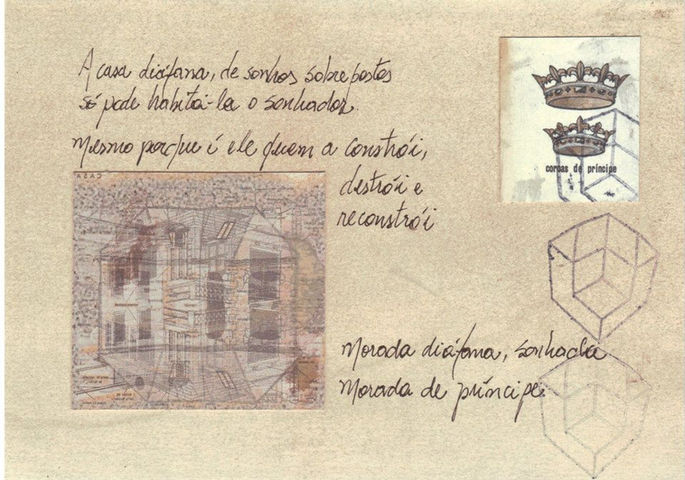 A casa diáfana, de sonhos sobrepostos
só pode habitá-la o sonhador.
Mesmo porque é ele quem a constrói,
destrói e
reconstrói
coroas de príncipe
CASA
Morada diáfana, sonhada
Morada de príncipe.